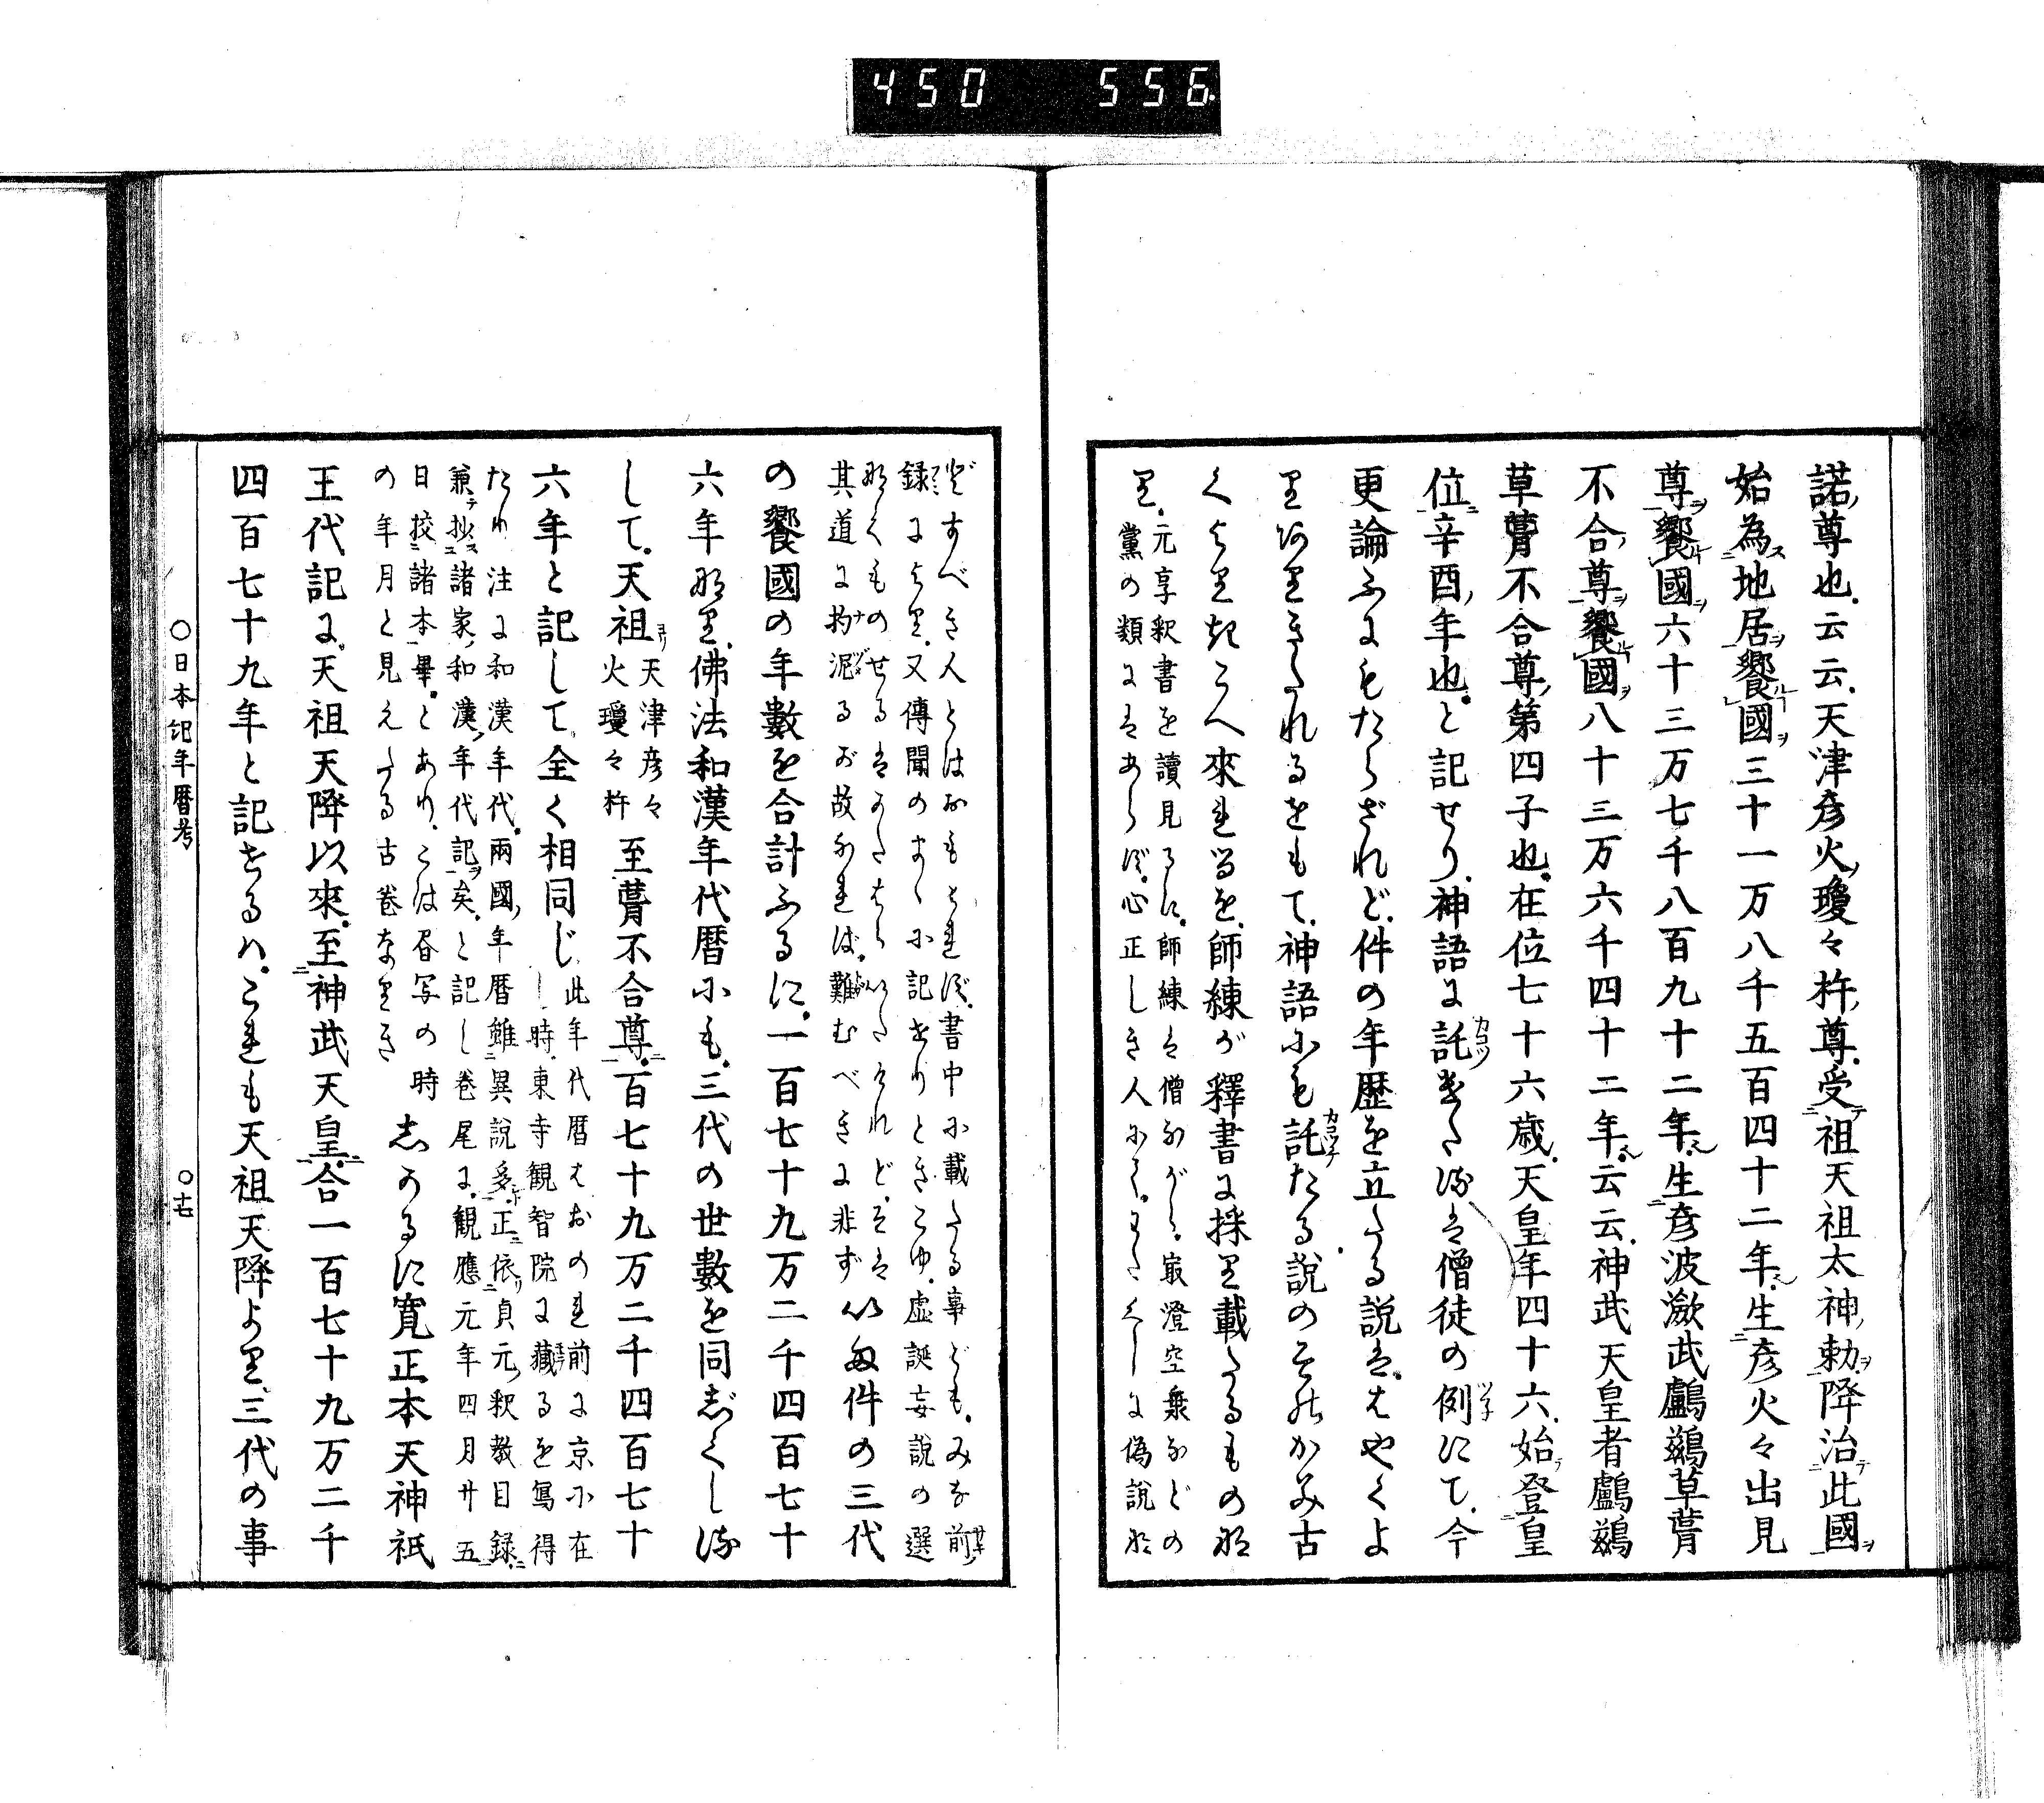 450 556
諾尊也云云天津彦火瓊々杵尊受祖天祖太神勅降治此國
始為地居饗國三十一万八千五百四十二年生彦火々出見
尊饗國六十三万七千八百九十二年生彦波瀲武鸕鷀草葺
不合尊饗國八十三万六千四十二年云云神武天皇者鸕鷀
草葺不合尊第四子也在位七十六歳天皇年四十六始登皇
位辛酉年也と記せり神語に託せたるは僧徒の例にて今
更論ふにもたらざれど件の年歴を立たる説ははやくよ
り有りきたれるをもて神語にも託たる説の
くより
來れるを師練が釋書に採り載たるものな
り元享釈書を讀見るに師練は僧ながら最澄空乗などの
黨の類にはあらず心正しき人にて
に偽説な
どすべき人とはおもはれず書中に載たる事ども
録により又傳聞のまゝに記せりときこゆ虚誕妄説の選
其道に拘泥るが故なれば難むべきに非ず
件の三代
の饗國の年數を合計ふるに一百七十九万二千四百七十
六年なり佛法和漢年代暦にも三代の世數を同じくしる
して天祖天津彦々火瓊々杵至葺不合尊百七十九万二千四百七十
六年と記して全く相同じ
此年代暦はおのれ前に京に在
し時東寺観智院に藏るを写得
たり注に和漢年代兩國年暦雖異説多正依貞元釈教目録
兼抄諸家和漢年代記矣と記し巻尾に観應元年四月廿五
日挍諸本畢とあり
写の時
の年月と見えたる古巻なりき
しかるに寛正本天神祇
王代記に天祖天降以來至神武天皇合一百七十九万二千
四百七十九年と記せるはこれも天祖天降より三代の事
○日本紀年暦考 ○十七